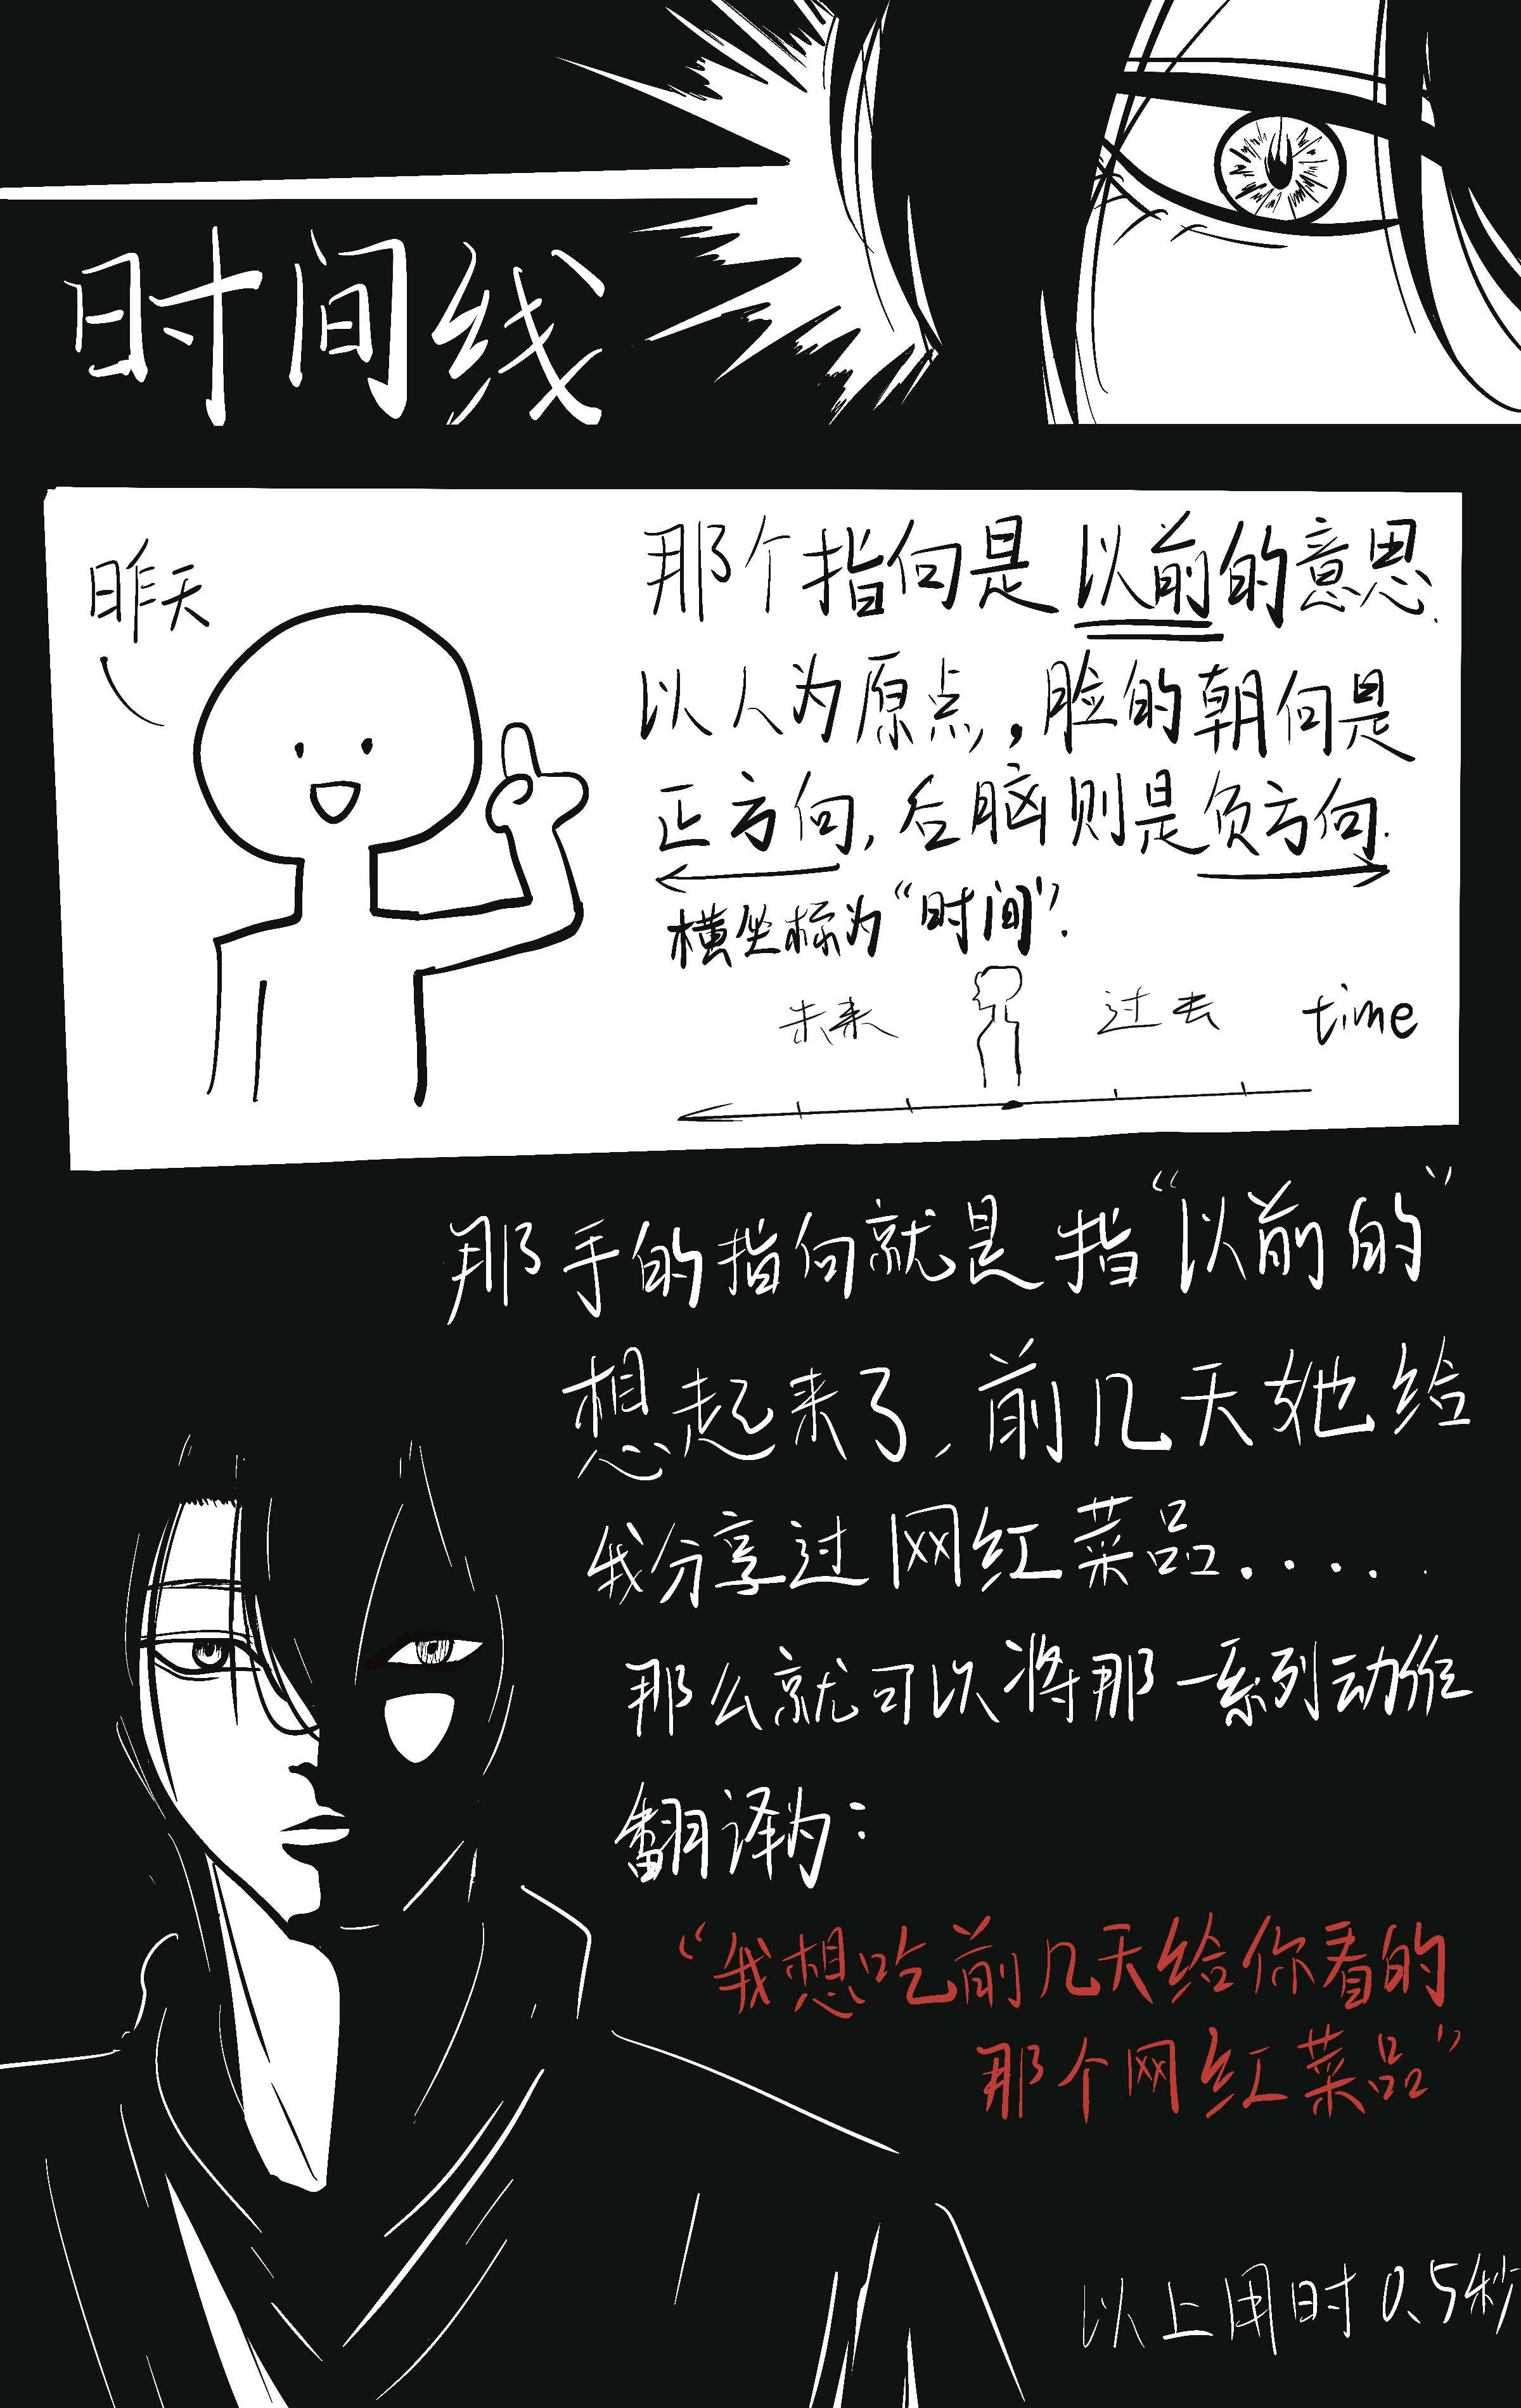 时间线
昨天
那个指向是以前的意思.
以人为原点,脸的朝向是
正方向,后脑则是负方向.
横坐标为“时间”.
未来 过去 time
那手的指向就是指“以前的”
想起来了,前几天她给
我分享过网红菜品.....
那么就可以将那一系列动作
翻译为:
“我想吃前几天给你看的
那个网红菜品”
以上用时0.5秒